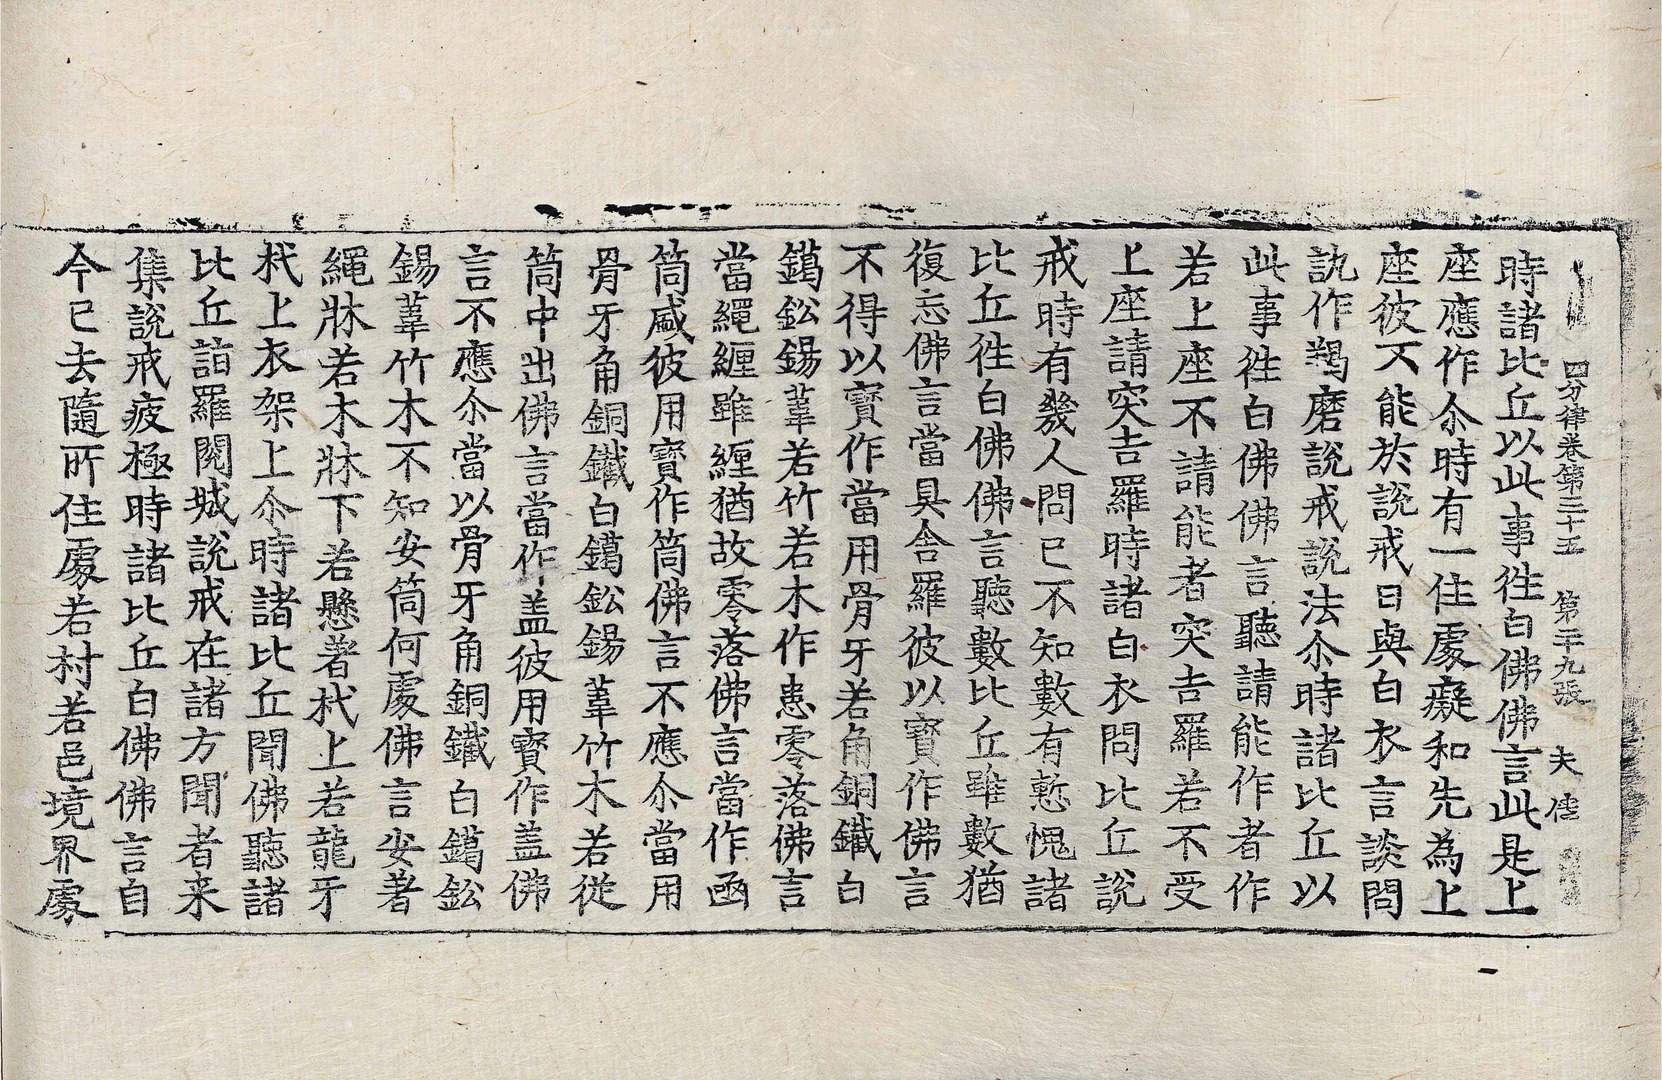 四分律卷第三十五 第二十九張 夫
時諸比丘以此事往白佛佛言此是上
座應作尒時有一住處癡和先為上
座彼不能於說戒日與白衣言談問
訊作羯磨說戒說法尒時諸比丘以
此事往白佛佛言聽請能作者作
若上座不請能者突吉羅若不受
上座請突吉羅時諸白衣問比丘說
戒時有幾人問已不知數有慙愧諸
比丘往白佛佛言聽數比丘雖數猶
復忘佛言當具舍羅彼以寶作佛言
不得以寶作當用骨牙若角銅鐵白
鑞鈆錫葦若竹若木作患零落佛言
當繩纒雖纒猶故零落佛言當作函
筒盛彼用寶作筒佛言不應尒當用
骨牙角銅鐵白鑞鈆錫葦竹木若從
筒中出佛言當作盖彼用寶作盖佛
言不應尒當以骨牙角銅鐵白鑞鈆
錫葦竹木不知安筒何處佛言安著
繩牀若木牀下若懸著杙上若龍牙
杙上衣架上尒時諸比丘聞佛聽諸
比丘詣羅閱城說戒在諸方聞者来
集說戒疲極時諸比丘白佛佛言自
今已去隨所住處若村若邑境界處